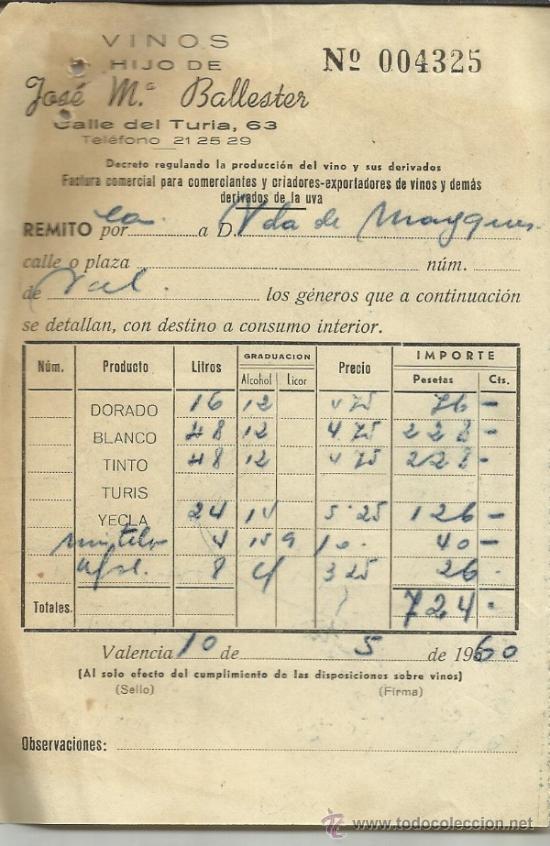 VINOS
HIJO DE
José M.ª Ballester
Calle del Turia, 63
Teléfono 21 25 29
Nº 004325
Decreto regulando la producción del vino y sus derivados
Factura comercial para comerciantes y criadores-exportadores de vinos y demás
derivados de la uva
REMITO por a D. Vda de
calle o plaza núm.
de Val. los géneros que a continuación
se detallan, con destino a consumo interior.
Núm. Producto Litros GRADUACION Alcohol Licor Precio IMPORTE Pesetas Cts.
DORADO 16 12 4 75 76 -
BLANCO 48 12 4 75 228 -
TINTO 48 12 4 75 228 -
TURIS
YECLA 24 14 5·25 126 -
4 15 9 10· 40 -
8 4 3 25 26·
Totales. 724·
Valencia 10 de 5 de 1960
(Al solo efecto del cumplimiento de las disposiciones sobre vinos)
(Sello) (Firma)
Observaciones:
todocoleccion
http://www.todocoleccion.net